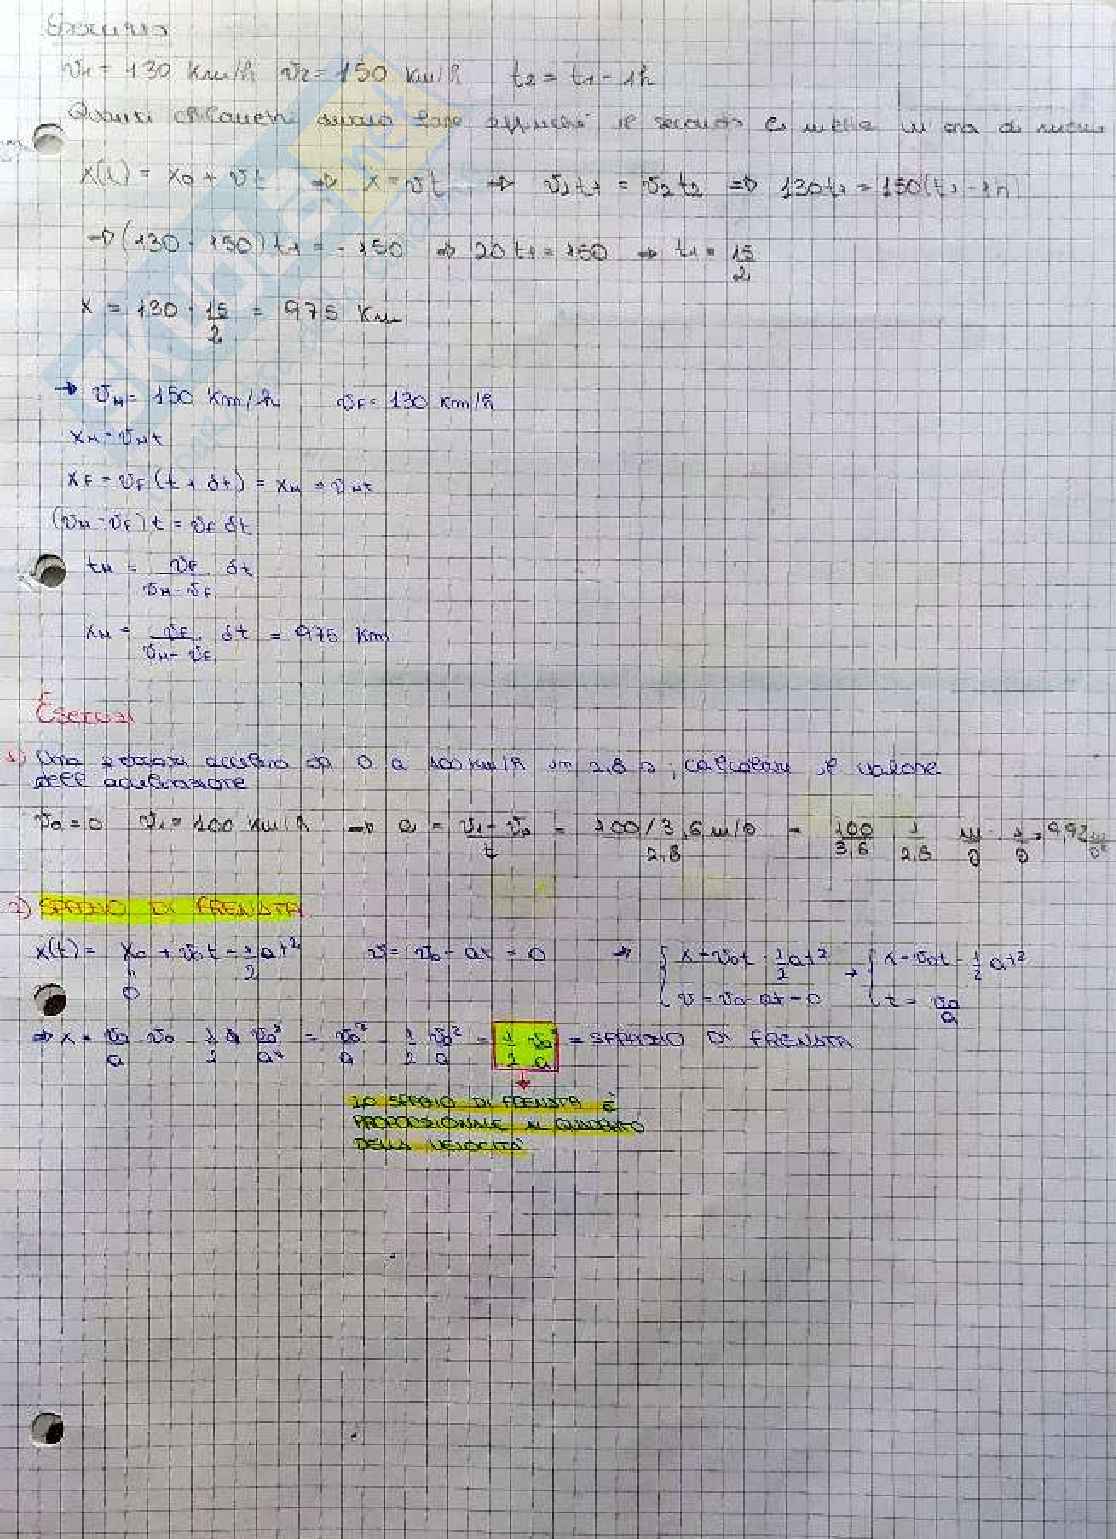 Esercizio
v₁ = 130 Km/h v₂ = 150 Km/h t₂ = t₁ - 1h
Quanti chilometri fare il secondo ci metta un'ora di
x(t) = x₀ + vt ⇒ x = vt ⇒ v₁t₁ = v₂t₂ ⇒ 130t₁ = 150(t₁ - 1h)
⇒ (130 - 150)t₁ = - 150 ⇒ 20t₁ = 150 ⇒ t₁ = 15/2
x = 130 · 15/2 = 975 Km
→ v_M = 150 km/h v_F = 130 km/h
x_M = v_M t
x_F = v_F (t + δt) = x_M = v_M t
(v_M - v_F) t = v_F δt
t_M = v_F/(v_M - v_F) δt
x_M = v_F/(v_M - v_F) δt = 975 Km
Esercizi
1) Una da 0 a 100 km/h in 2,8 s, calcolare il valore
dell'accelerazione
v₀ = 0 v₁ = 100 Km/h ⇒ a = (v₁ - v₀)/t = (100/3,6 m/s)/2,8 = 100/3,6 1/2,8 m/s · 1/s = 9,92 m/s²
2) SPAZIO DI FRENATA
x(t) = x₀ + v₀t - 1/2 at² v = v₀ - at = 0 → { x = v₀t - 1/2 at² → { x = v₀t - 1/2 at²
0 { v = v₀ - at = 0 { t = v₀/a
⇒ x = v₀/a v₀ - 1/2 a v₀²/a² = v₀²/a - 1/2 v₀²/a = 1/2 v₀²/a = SPAZIO DI FRENATA
LO SPAZIO DI FRENATA È
PROPORZIONALE AL QUADRATO
DELLA VELOCITÀ